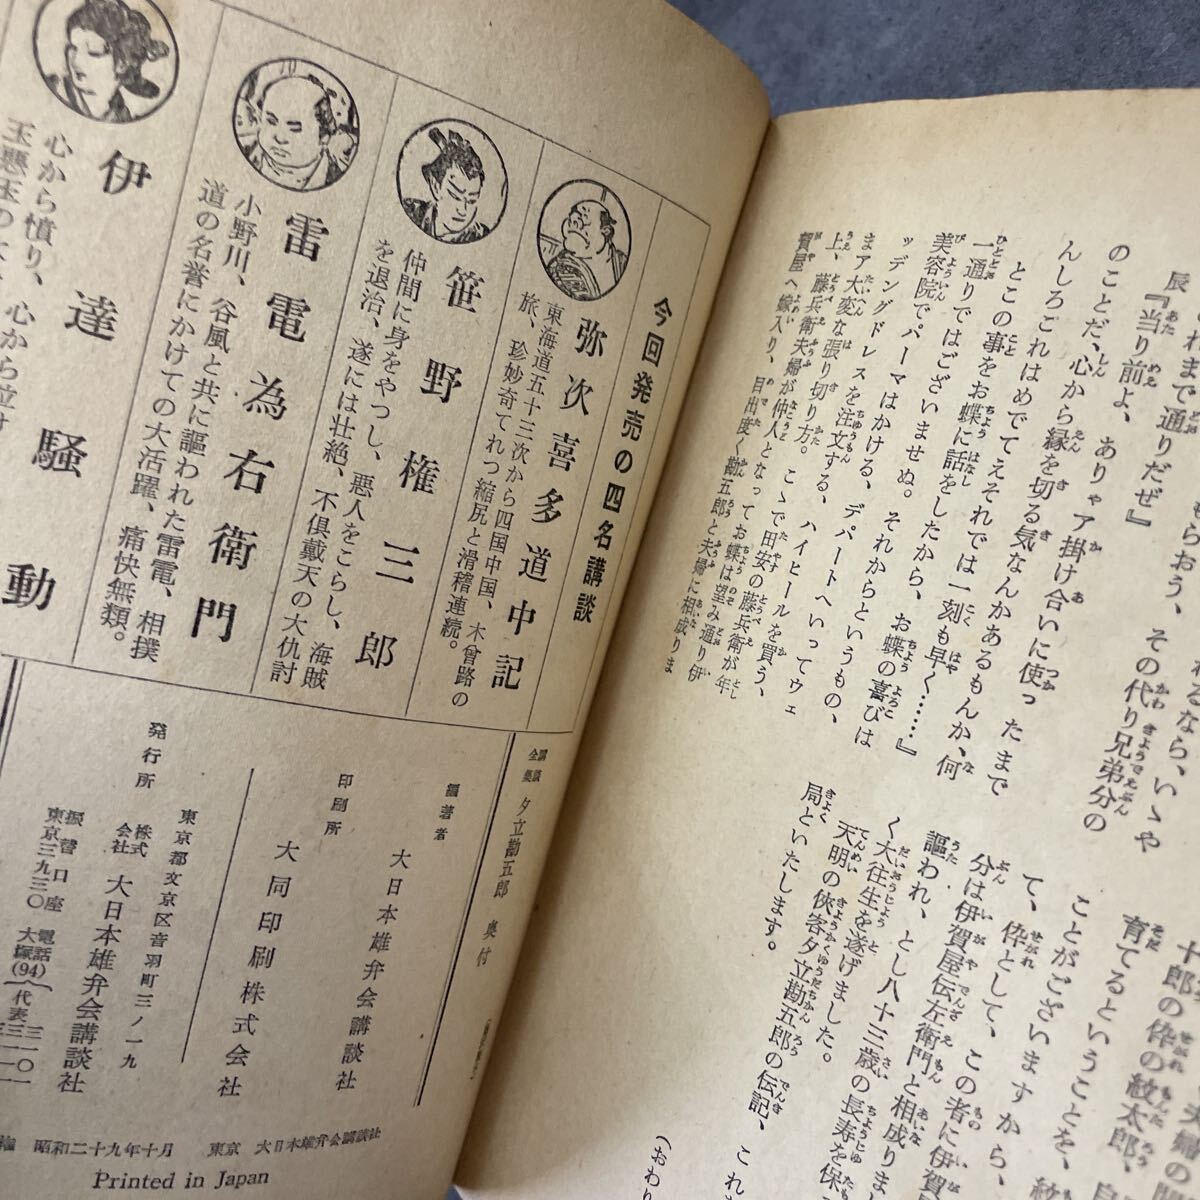 れまで通りだぜ』
辰『当り前よ、ありゃア掛け合いに使った
のことだ、心から縁を切る気なんかあるもんか、何
んしろこれはめでてえそれでは一刻も早く……』
とこの事をお蝶に話をしたから、お蝶の喜びは
一通りではございませぬ。それからというもの、
美容院でパーマはかける、デパートへいってウェ
ッデングドレスを注文する、ハイヒールを買う、
まア大変な張り切り方。こゝで田安の藤兵衛が年
上、藤兵衛夫婦が仲人となってお蝶は望み通り伊
賀屋へ嫁入り、目出度く勘五郎と夫婦に相成りま
十郎の伜の紋太郎、
育てるということを、
ことがございますから、
て、伜として、この者に伊賀
分は伊賀屋伝左衛門と相成りまし
謳われ、とし八十三歳の長寿を保
く大往生を遂げました。
天明の俠客夕立勘五郎の伝記、これ
局といたします。
(おわり
今回発売の四名講談
弥次喜多道中記
東海道五十三次から四国中国、木曾路の
旅、珍妙奇てれつ縮尻と滑稽連続。
笹野権三郎
仲間に身をやつし、悪人をこらし、海賊
を退治、遂には壮絶、不俱戴天の大仇討
雷電為右衛門
小野川、谷風と共に謳われた雷電、相撲
道の名誉にかけての大活躍、痛快無類。
伊達騒動
心から憤り、心から泣す
講談全集 夕立勘五郎 奥付
編著者 大日本雄弁会講談社
印刷所 大同印刷株式会社
発行所
東京都文京区音羽町三ノ一九
株式会社 大日本雄弁会講談社
電話 大塚(94) 代表
振替口座 東京三九三〇
昭和二十九年十月 東京 大日本雄弁会講談社
Printed in Japan